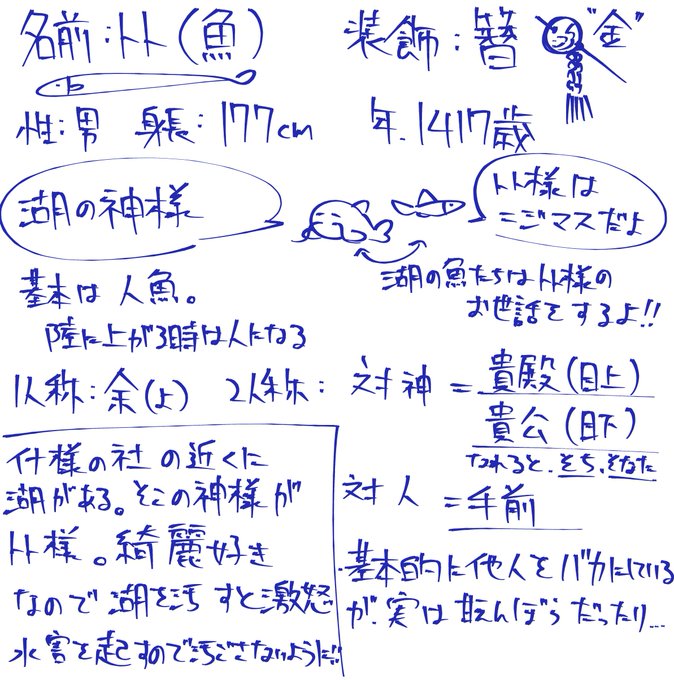 名前:トト(魚)
装飾:簪 "金"
性:男 身長:177cm 年.1417歳
湖の神様
トト様は
ニジマスだよ
基本は人魚。
陸に上がる時は人になる
湖の魚たちはトト様の
お世話をするよ!!
1人称:余(よ) 2人称:対神=貴殿(目上)
貴公(目下)
なれると、そち、そなた
対人=手前
什様の社の近くに
湖がある。そこの神様が
トト様。綺麗好き
なので湖を汚すと激怒
水害を起すので汚さないように!!
基本的に他人をバカにしている
が、実は甘えんぼうだったり…